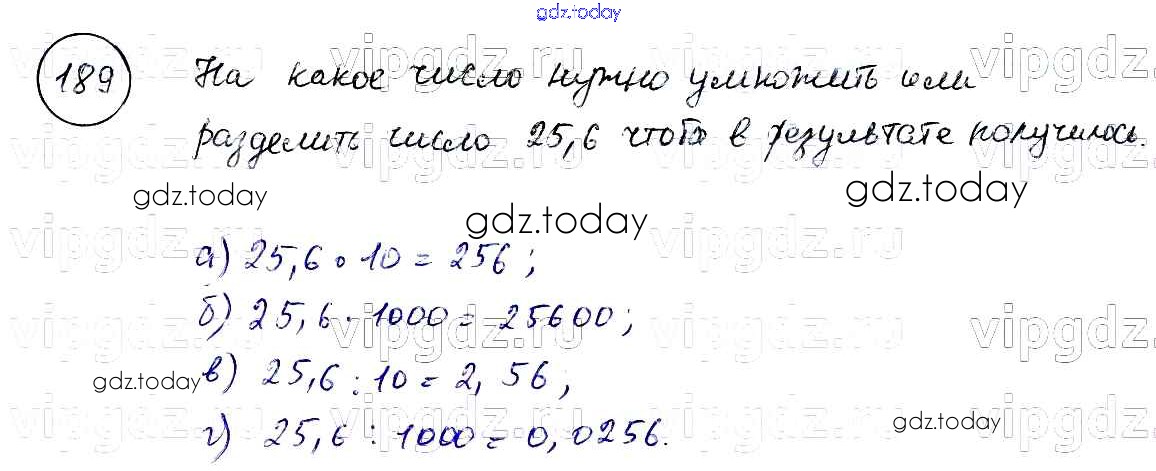 gdz.today
189 На какое число нужно умножить или
разделить число 25,6 чтобы в результате получилось.
gdz.today
gdz.today
gdz.today
а) 25,6 · 10 = 256;
б) 25,6 · 1000 = 25600;
в) 25,6 : 10 = 2,56;
gdz.today
г) 25,6 : 1000 = 0,0256.
gdz.today
vipgdz.ru vipgdz.ru vipgdz.ru vipgdz.
vipgdz.ru vipgdz.ru vipgdz.ru vipgdz.
vipgdz.ru vipgdz.ru vipgdz.ru vipgdz.
vipgdz.ru vipgdz.ru vipgdz.ru vipgdz.
vipgdz.ru vipgdz.ru vipgdz.ru vipgdz.